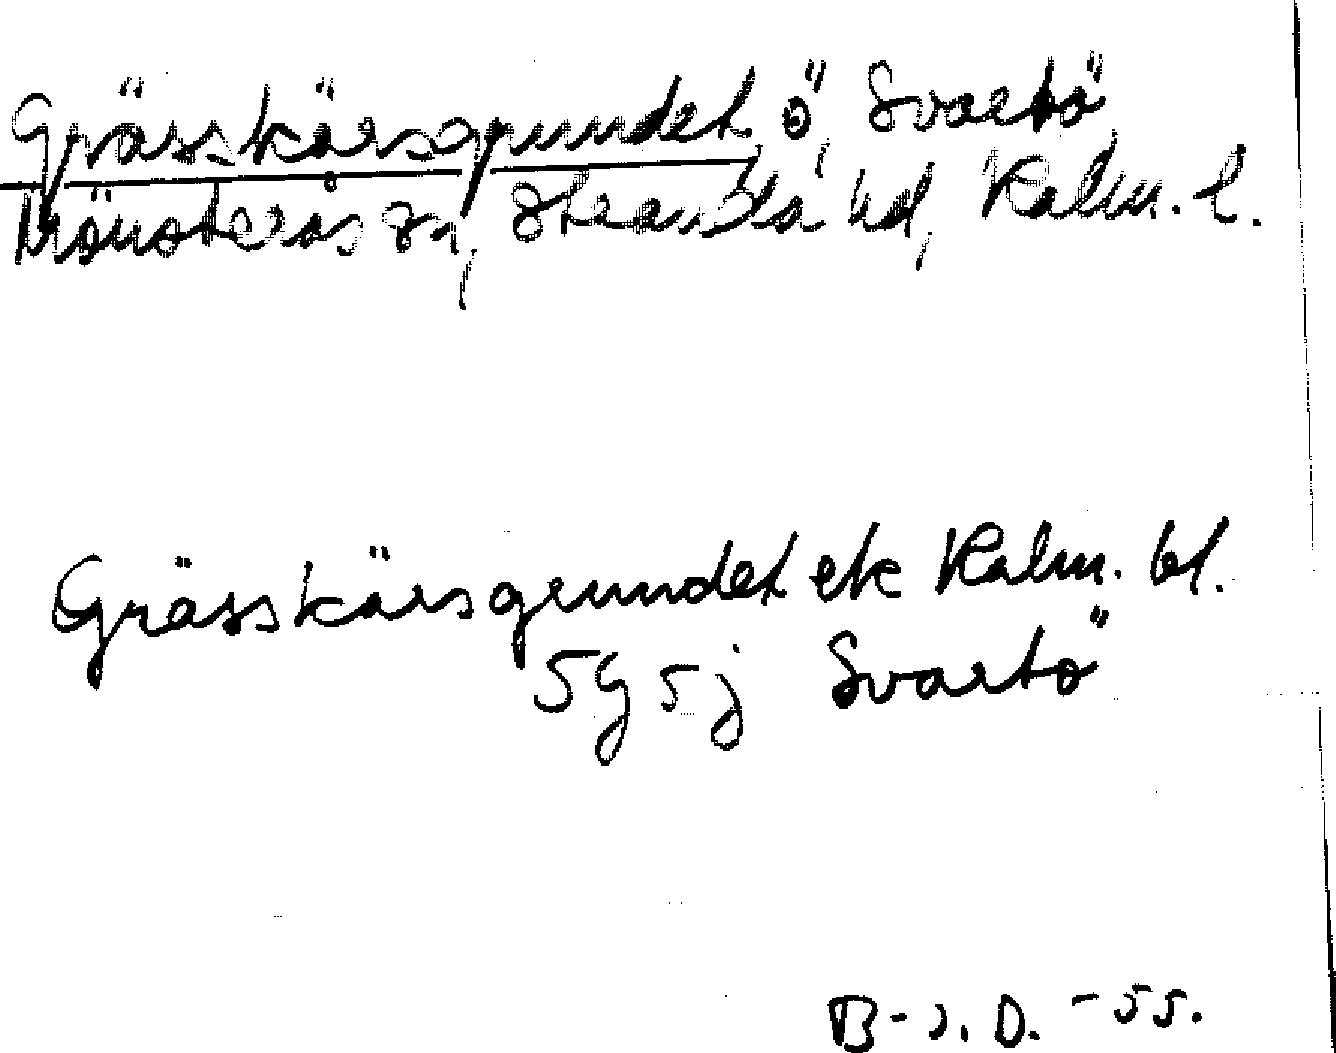 Grässkärsgrundet, ö, Svartö,
Mönsterås sn, Stranda hd, Kalm. l.
Grässkärsgrundet ek Kalm. bl.
5G 5j Svartö
B-J. D. -55.